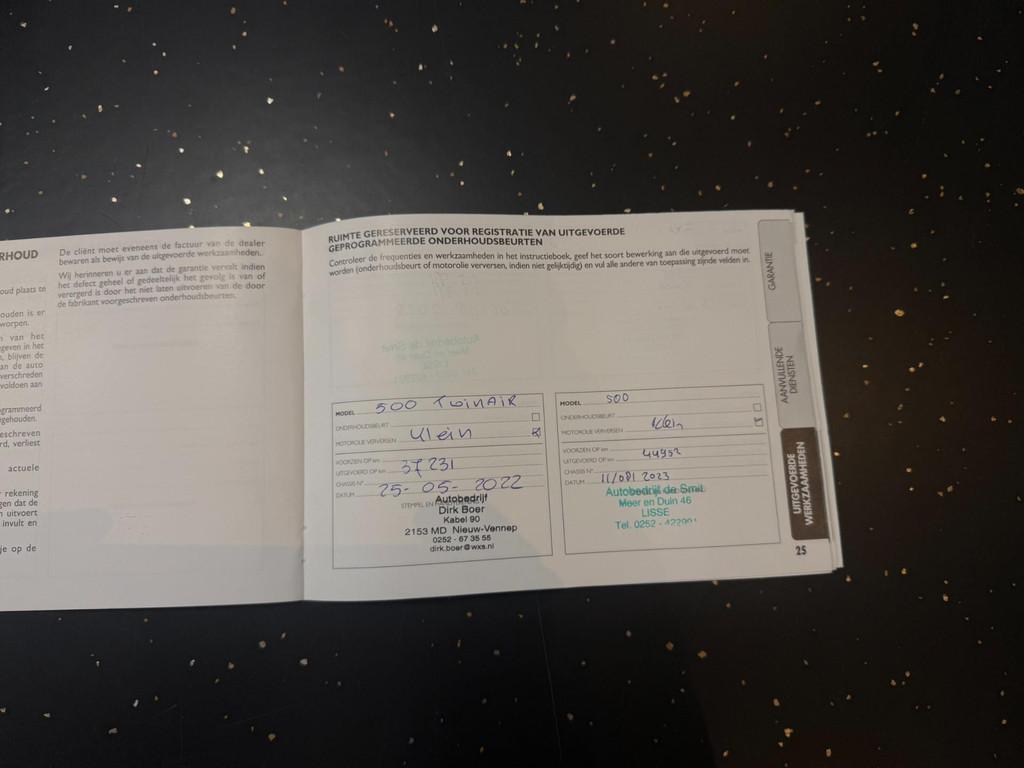 RHOUD
oud plaats te
ouden is er
worpen.
van het
geven in het
blijven de
an de auto
verschreden
voldoen aan
grammeerd
gehouden.
eschreven
rd, verliest
actuele
r rekening
gen dat de
n uitvoert
invult en
je op de
De cliënt moet eveneens de factuur van de dealer
bewaren als bewijs van de uitgevoerde werkzaamheden.
Wij herinneren u er aan dat de garantie vervalt indien
het defect geheel of gedeeltelijk het gevolg is van of
verergerd is door het niet laten uitvoeren van de door
de fabrikant voorgeschreven onderhoudsbeurten.
RUIMTE GERESERVEERD VOOR REGISTRATIE VAN UITGEVOERDE
GEPROGRAMMEERDE ONDERHOUDSBEURTEN
Controleer de frequenties en werkzaamheden in het instructieboek, geef het soort bewerking aan die uitgevoerd moet
worden (onderhoudsbeurt of motorolie verversen, indien niet gelijktijdig) en vul alle andere van toepassing zijnde velden in.
MODEL 500 TwinAIR
ONDERHOUDSBEURT
MOTOROLIE VERVERSEN Klein
VOORZIEN OP km
UITGEVOERD OP km 37231
CHASSIS N°
DATUM 25-05-2022
STEMPEL EN
Autobedrijf
Dirk Boer
Kabel 90
2153 MD Nieuw-Vennep
0252 - 67 35 55
dirk.boer@wxs.nl
MODEL 500
ONDERHOUDSBEURT
MOTOROLIE VERVERSEN Klein
VOORZIEN OP km
UITGEVOERD OP km 44952
CHASSIS N°
DATUM 2023
Autobedrijf de Smit
Meer en Duin 46
LISSE
Tel. 0252 -
GARANTIE
AANVULLENDE
DIENSTEN
UITGEVOERDE
WERKZAAMHEDEN
25